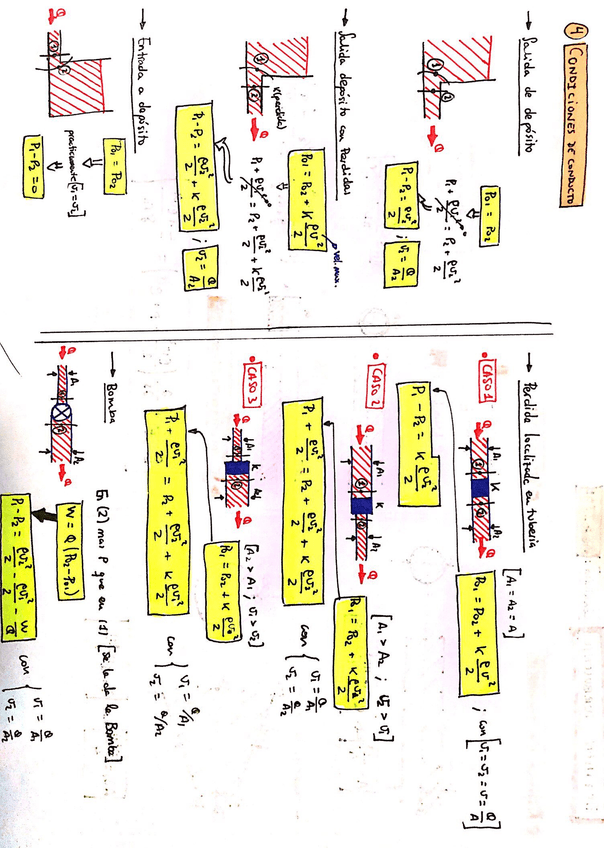 4 CONDICIONES DE CONDUCTO
→ Salida de depósito
① ② Q
P01 = P02
P1 + ρv1²/2 = P2 + ρv2²/2
P1 - P2 = ρv2²/2 ; v2 = Q/A2
→ Salida depósito con Perdidas
① ② Q
K(pérdida)
P01 = P02 + K ρv2²/2
vel. max.
P1 + ρv1²/2 = P2 + ρv2²/2 + K ρv2²/2
P1 - P2 = ρv2²/2 + K ρv2²/2 ; v2 = Q/A2
→ Entrada a depósito
Q ① ②
P01 = P02
practicamente [v1 = v2]
P1 - P2 = 0
→ Perdida localizada en tubería
• CASO 1
[A1 = A2 = A]
Q A1 K A2 Q
P01 = P02 + K ρv²/2 ; con [v1 = v2 = v = Q/A]
P1 - P2 = K ρv²/2
• CASO 2
[A1 > A2 ; v2 > v1]
Q A1 K A2 Q
P01 = P02 + K ρv2²/2
P1 + ρv1²/2 = P2 + ρv2²/2 + K ρv2²/2
con { v1 = Q/A1
v2 = Q/A2
• CASO 3
[A2 > A1 ; v1 > v2]
Q A1 K A2 Q
P01 = P02 + K ρv1²/2
P1 + ρv1²/2 = P2 + ρv2²/2 + K ρv1²/2
con { v1 = Q/A1
v2 = Q/A2
→ Bomba
En (2) mas P que en (1) [se la da la Bomba]
Q A1 A2 Q
W = Q (P02 - P01)
P1 - P2 = ρv2²/2 - ρv1²/2 - W/Q
con { v1 = Q/A1
v2 = Q/A2